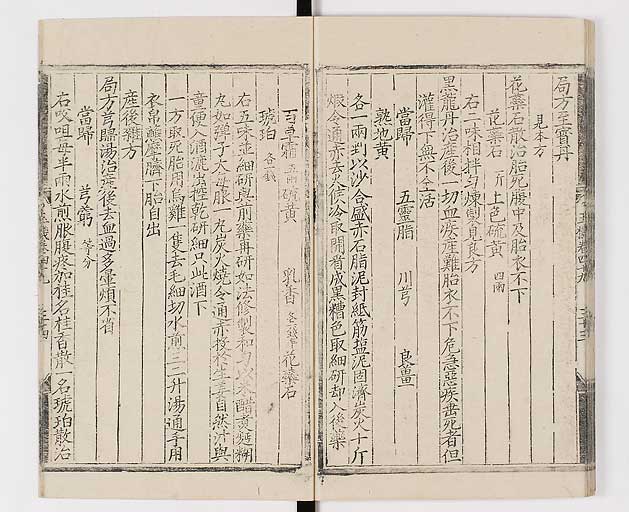 局方至寶丹
見本方
花蘂石散治胎死腹中及胎衣不下
花蘂石一斤 上色硫黄四兩
右二味相拌勻煉製見良方
黑龍丹治産後一切血疾産難胎衣不下危急惡疾垂死者但
灌得下無不全活
當歸 五靈脂 川芎 良薑
熟地黄
各一兩剉以沙合盛赤石脂泥封紙筋塩泥固濟炭火十斤
煅令通赤去火候冷取開看成黑糟色取細研却入後藥
百草霜五兩 硫黄 乳香各二錢 花蘂石
琥珀各一錢
右五味並細研與前藥再研如法修製和勻以米醋煮麵糊
丸如彈子大每服一丸炭火燒令通赤投於生薑自然汁與
童便入酒漉出控乾研細只此酒下
一方取死胎用烏雞一隻去毛細切水煎三二升湯通手用
衣帛蘸摩臍下胎自出
産後雜方
局方芎歸湯治産後去血過多暈煩不省
當歸 芎藭等分
右㕮咀每半兩水煎服腹疼加桂名桂香散一名琥珀散治